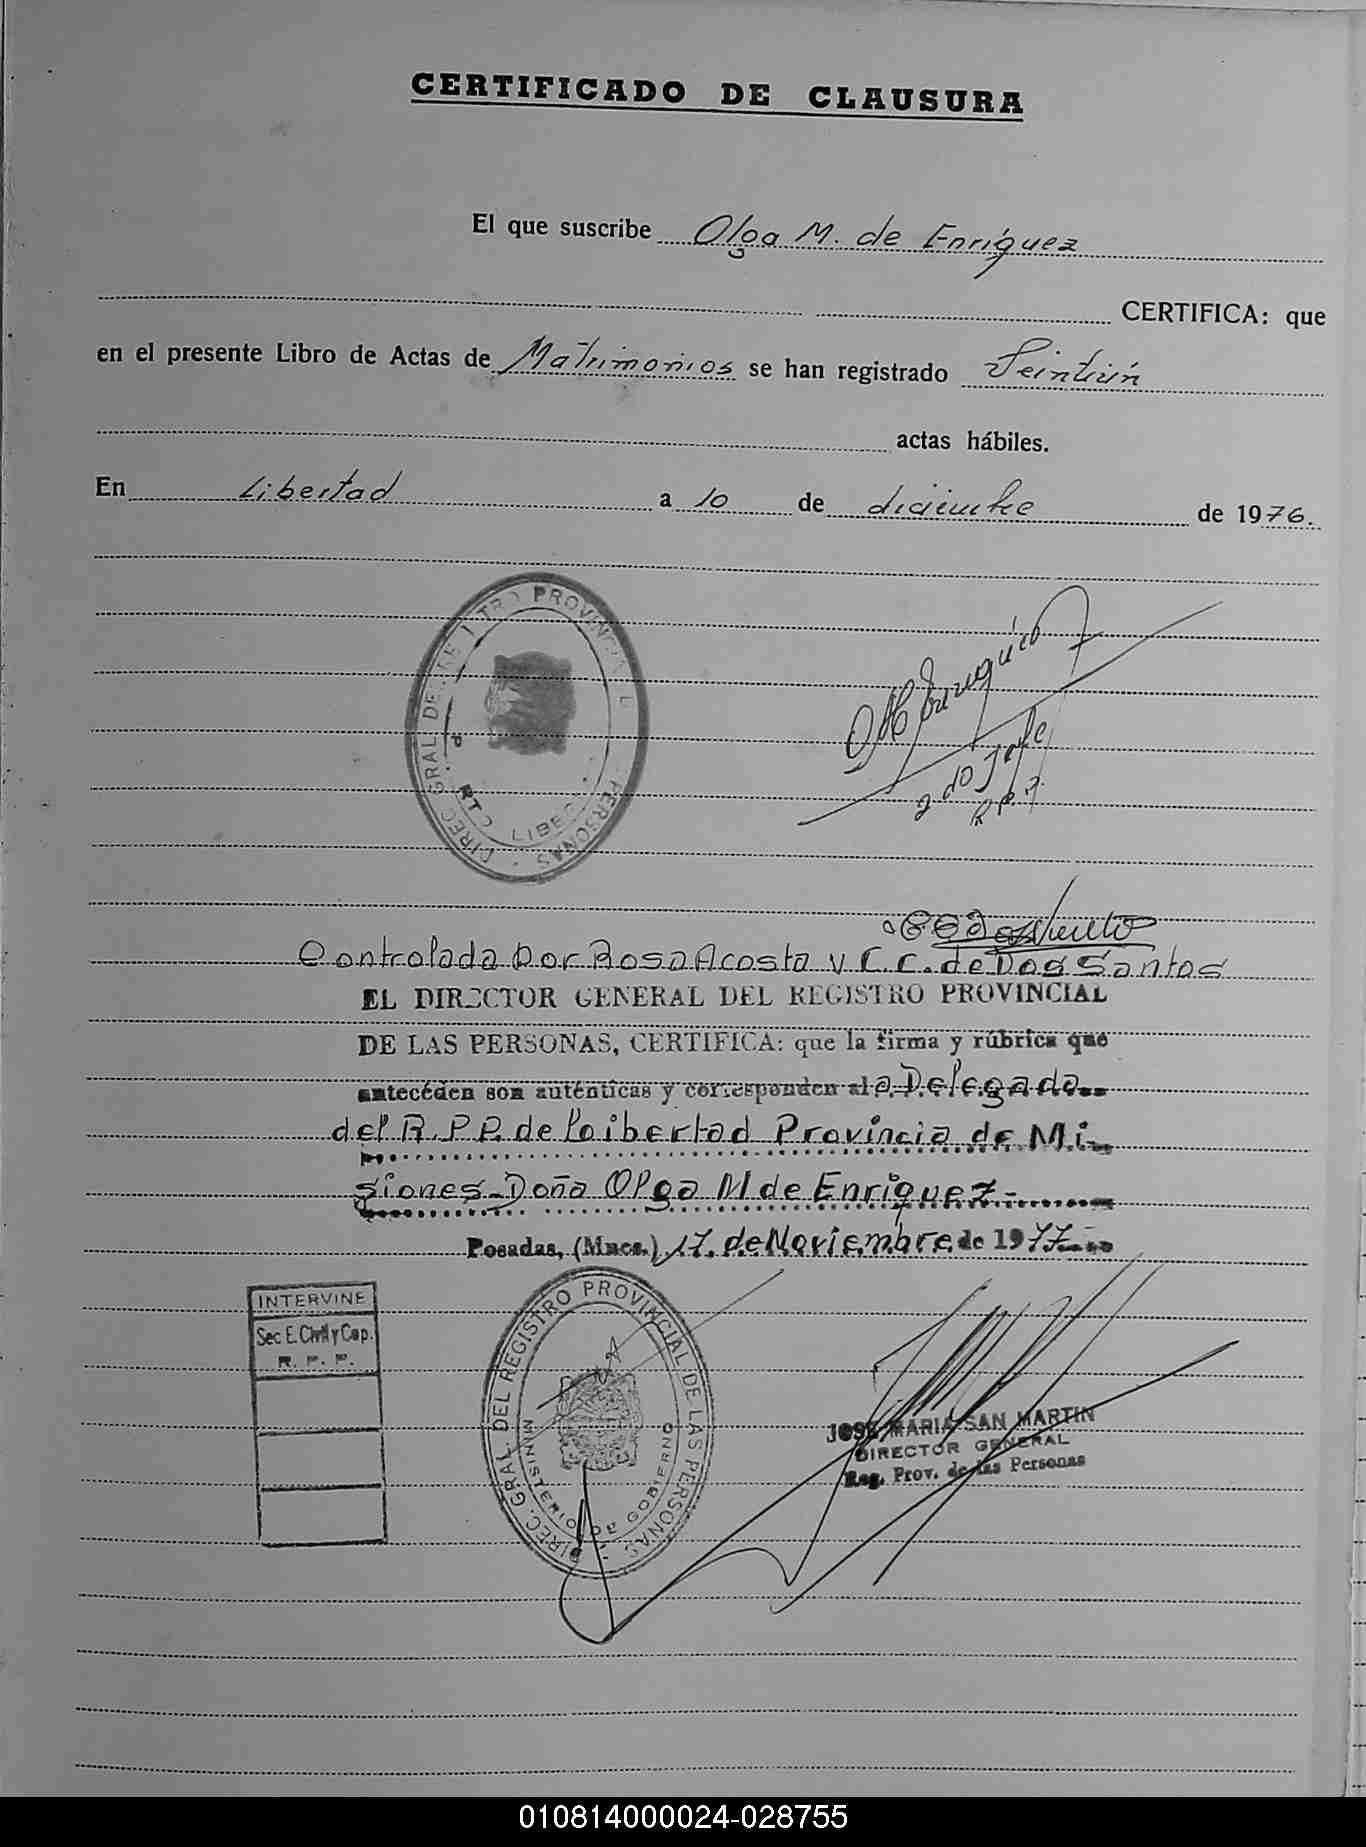 CERTIFICADO DE CLAUSURA
El que suscribe Olga M. de Enríquez
CERTIFICA: que
en el presente Libro de Actas de Matrimonios se han registrado Veintiún
actas hábiles.
En Libertad a 10 de diciembre de 1976.
DIREC. GRAL. DE PROVINCIAL PERSONAS
LIBE
OM Enríquez
2do Jefe
R.P.P.
Controlada por Rosa Acosta y C.C. de Dos Santos
EL DIRECTOR GENERAL DEL REGISTRO PROVINCIAL
DE LAS PERSONAS, CERTIFICA: que la firma y rúbrica que
antecéden son auténticas y corresponden al a Delegada
del R.P.P. de Libertad Provincia de Mi-
siones-Doña Olga M de Enríquez-
Posadas, (Mnes.) 17 de Noviembre de 1977
INTERVINE
Sec E. Civil y Cap.
R. P. P.
DIREC. GRAL. DEL REGISTRO PROVINCIAL DE LAS PERSONAS
MINISTERIO DE GOBIERNO
JOSE MARIA SAN MARTIN
DIRECTOR GENERAL
Reg. Prov. de las Personas
010814000024-028755